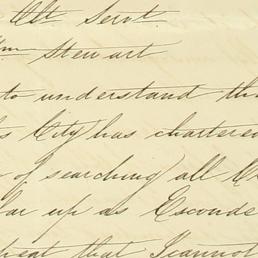 Obt Servt
Wm Stewart
to understand th
s City has chartere
of searching all
far up as Esconde
that I cannot